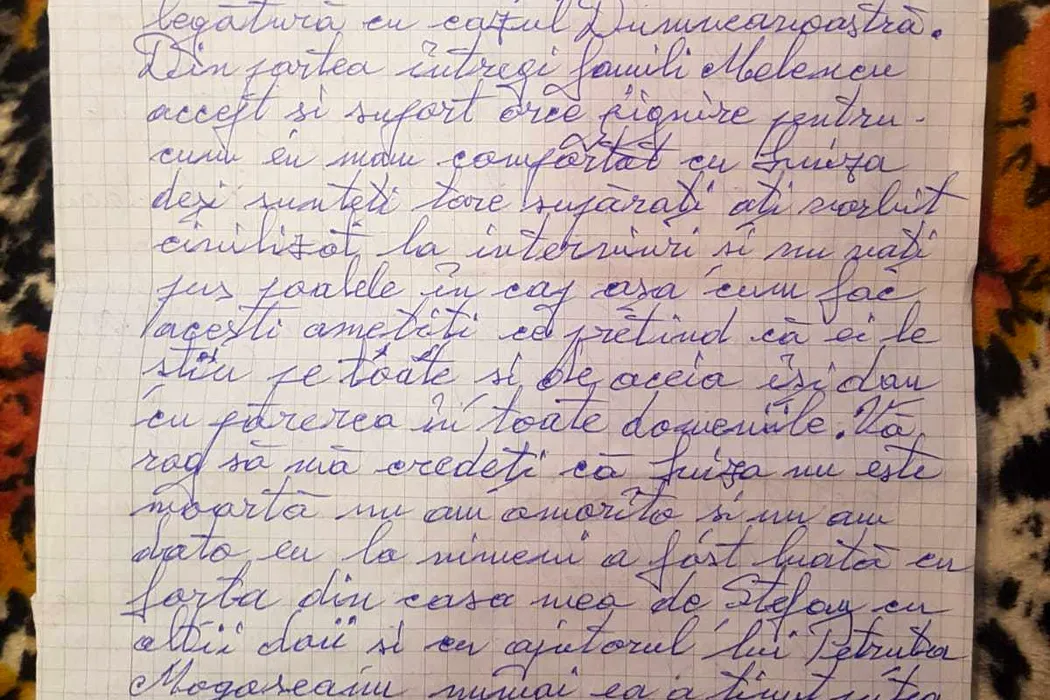 legătură cu cazul Dumneavoastră.
Din partea întregi famili Melencu
accept si suport orce jignire pentru
cum eu mam comportat cu Luiza
desi sunteti tare supărati ati vorbit
civilizat la interviuri si nu vati
pus poalele în cap asa cum fac
acesti ametiti ce pretind că ei le
stiu pe toate si de aceia isi dau
cu părerea in toate domeniile. Vă
rog să mă credeti că Luiza nu este
moartă nu am omorîto si nu am
dato eu la nimeni a fost luată cu
forta din casa mea de Stefan cu
altii doii si cu ajutorul lui Petruta
Mogoseanu numai ea a tinut